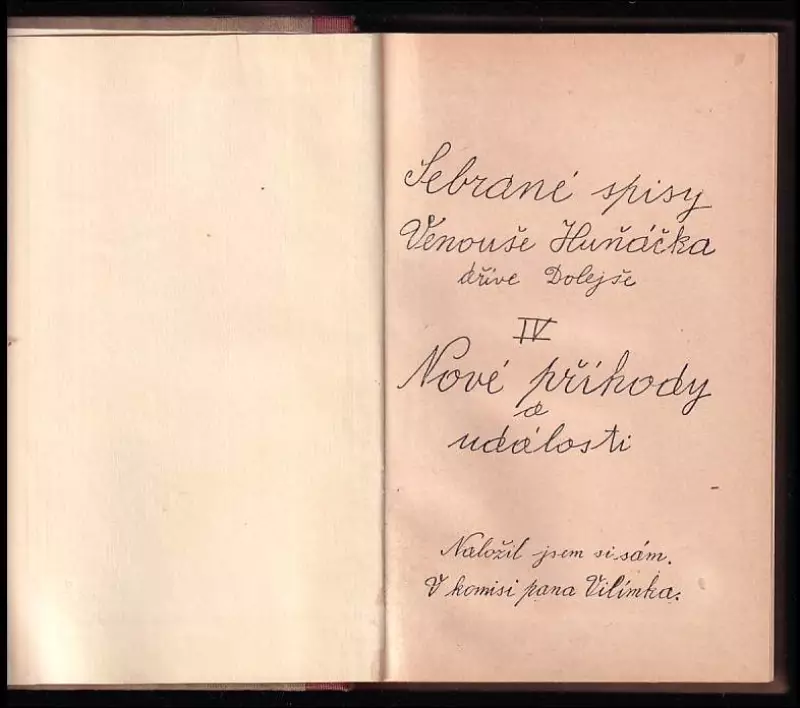 Sebrané spisy
Věnouše Huňáčka
dříve Dolejše
IV
Nové příhody
a
události
Naložil jsem si sám.
V komisi pana Vilímka.